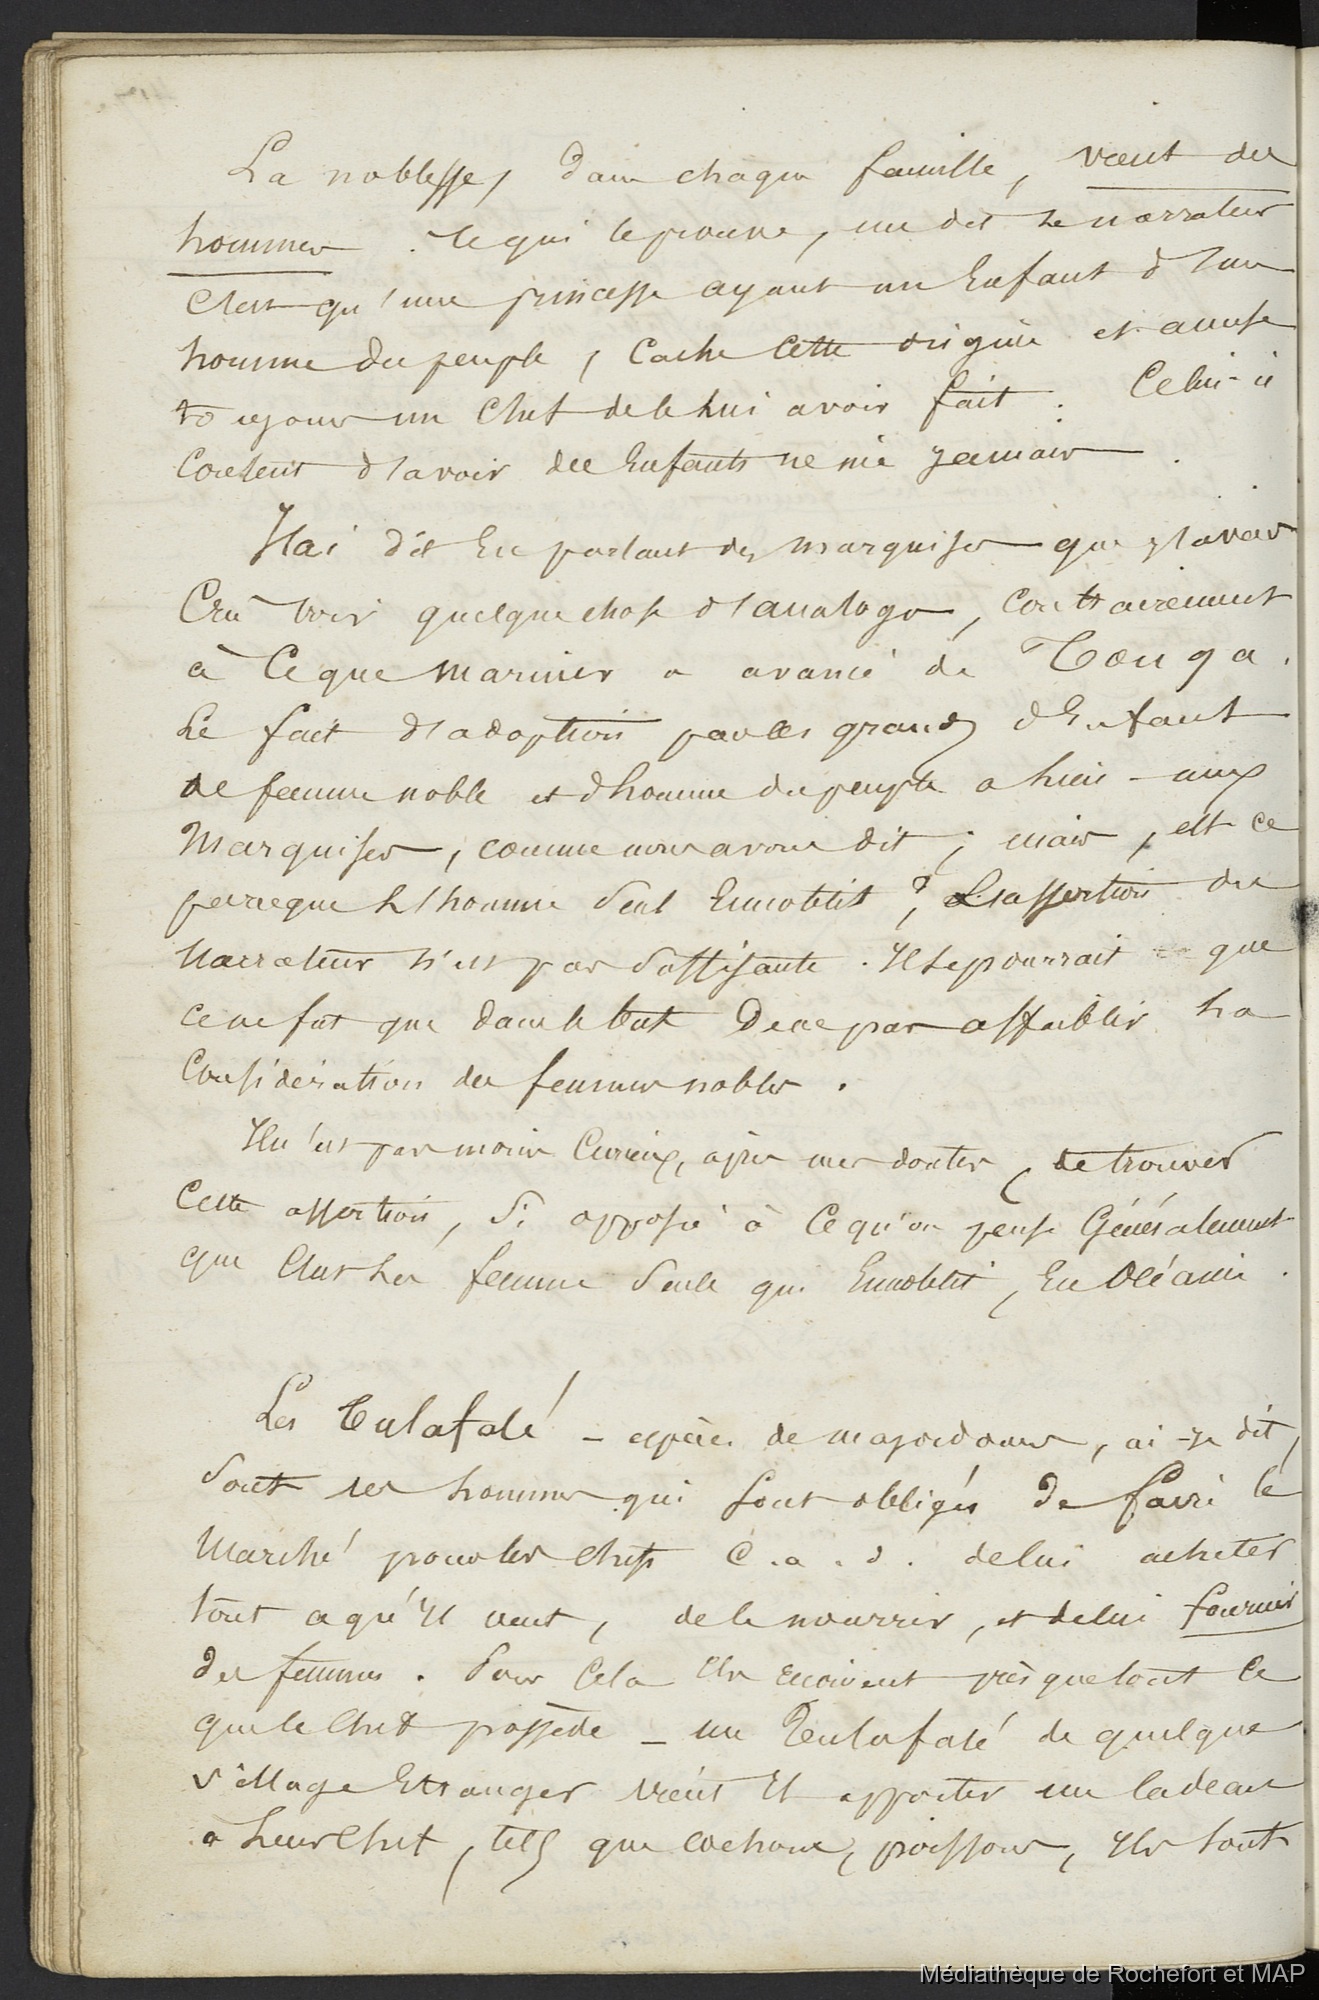 La noblesse, dans chaque famille, vient des
hommes. Ce qui le prouve, me dit le narrateur
c'est qu'une princesse ayant un Enfant d'un
homme du peuple, cache cette origine et accuse
toujours un Chef de le lui avoir fait. Celui-ci
content d'avoir des Enfants ne nie jamais.
J'ai dit En parlant des marquises que j'avais
Cru voir quelque chose d'analogue, contrairement
à Ce que Mariner a avancé de Tonga.
Le fait d'adoption par les grands d'Enfant
de femme noble et d'homme du peuple a lieu aux
Marquises, comme nous avons dit; mais, est ce
parceque l'homme seul Ennoblit? L'assertion du
Narrateur n'est pas suffisante. Il se pourrait que
ce ne fut que dans le but De ne pas affaiblir la
Considération des femmes nobles.
Il n'est pas moins Curieux, après mes doutes, de trouver
Cette assertion, si opposée à Ce qu'on pense Généralement
que C'est la femme seule qui Ennoblit, En Océanie.
Les Tulafalé - espèces de majordomes, ai-je dit,
sont les hommes qui sont obligés De faire le
Marché pour les chefs C.a.d. de lui acheter
tout ce qu'Il veut, de le nourrir, et de lui fournir
des femmes. Pour Cela Ils reçoivent presque tout Ce
que le Chef possède - un Tulafalé de quelque
village Etranger vient Il apporter un Cadeau
a leur Chef, tels que cochons, poissons, Ils sont
Médiathèque de Rochefort et MAP